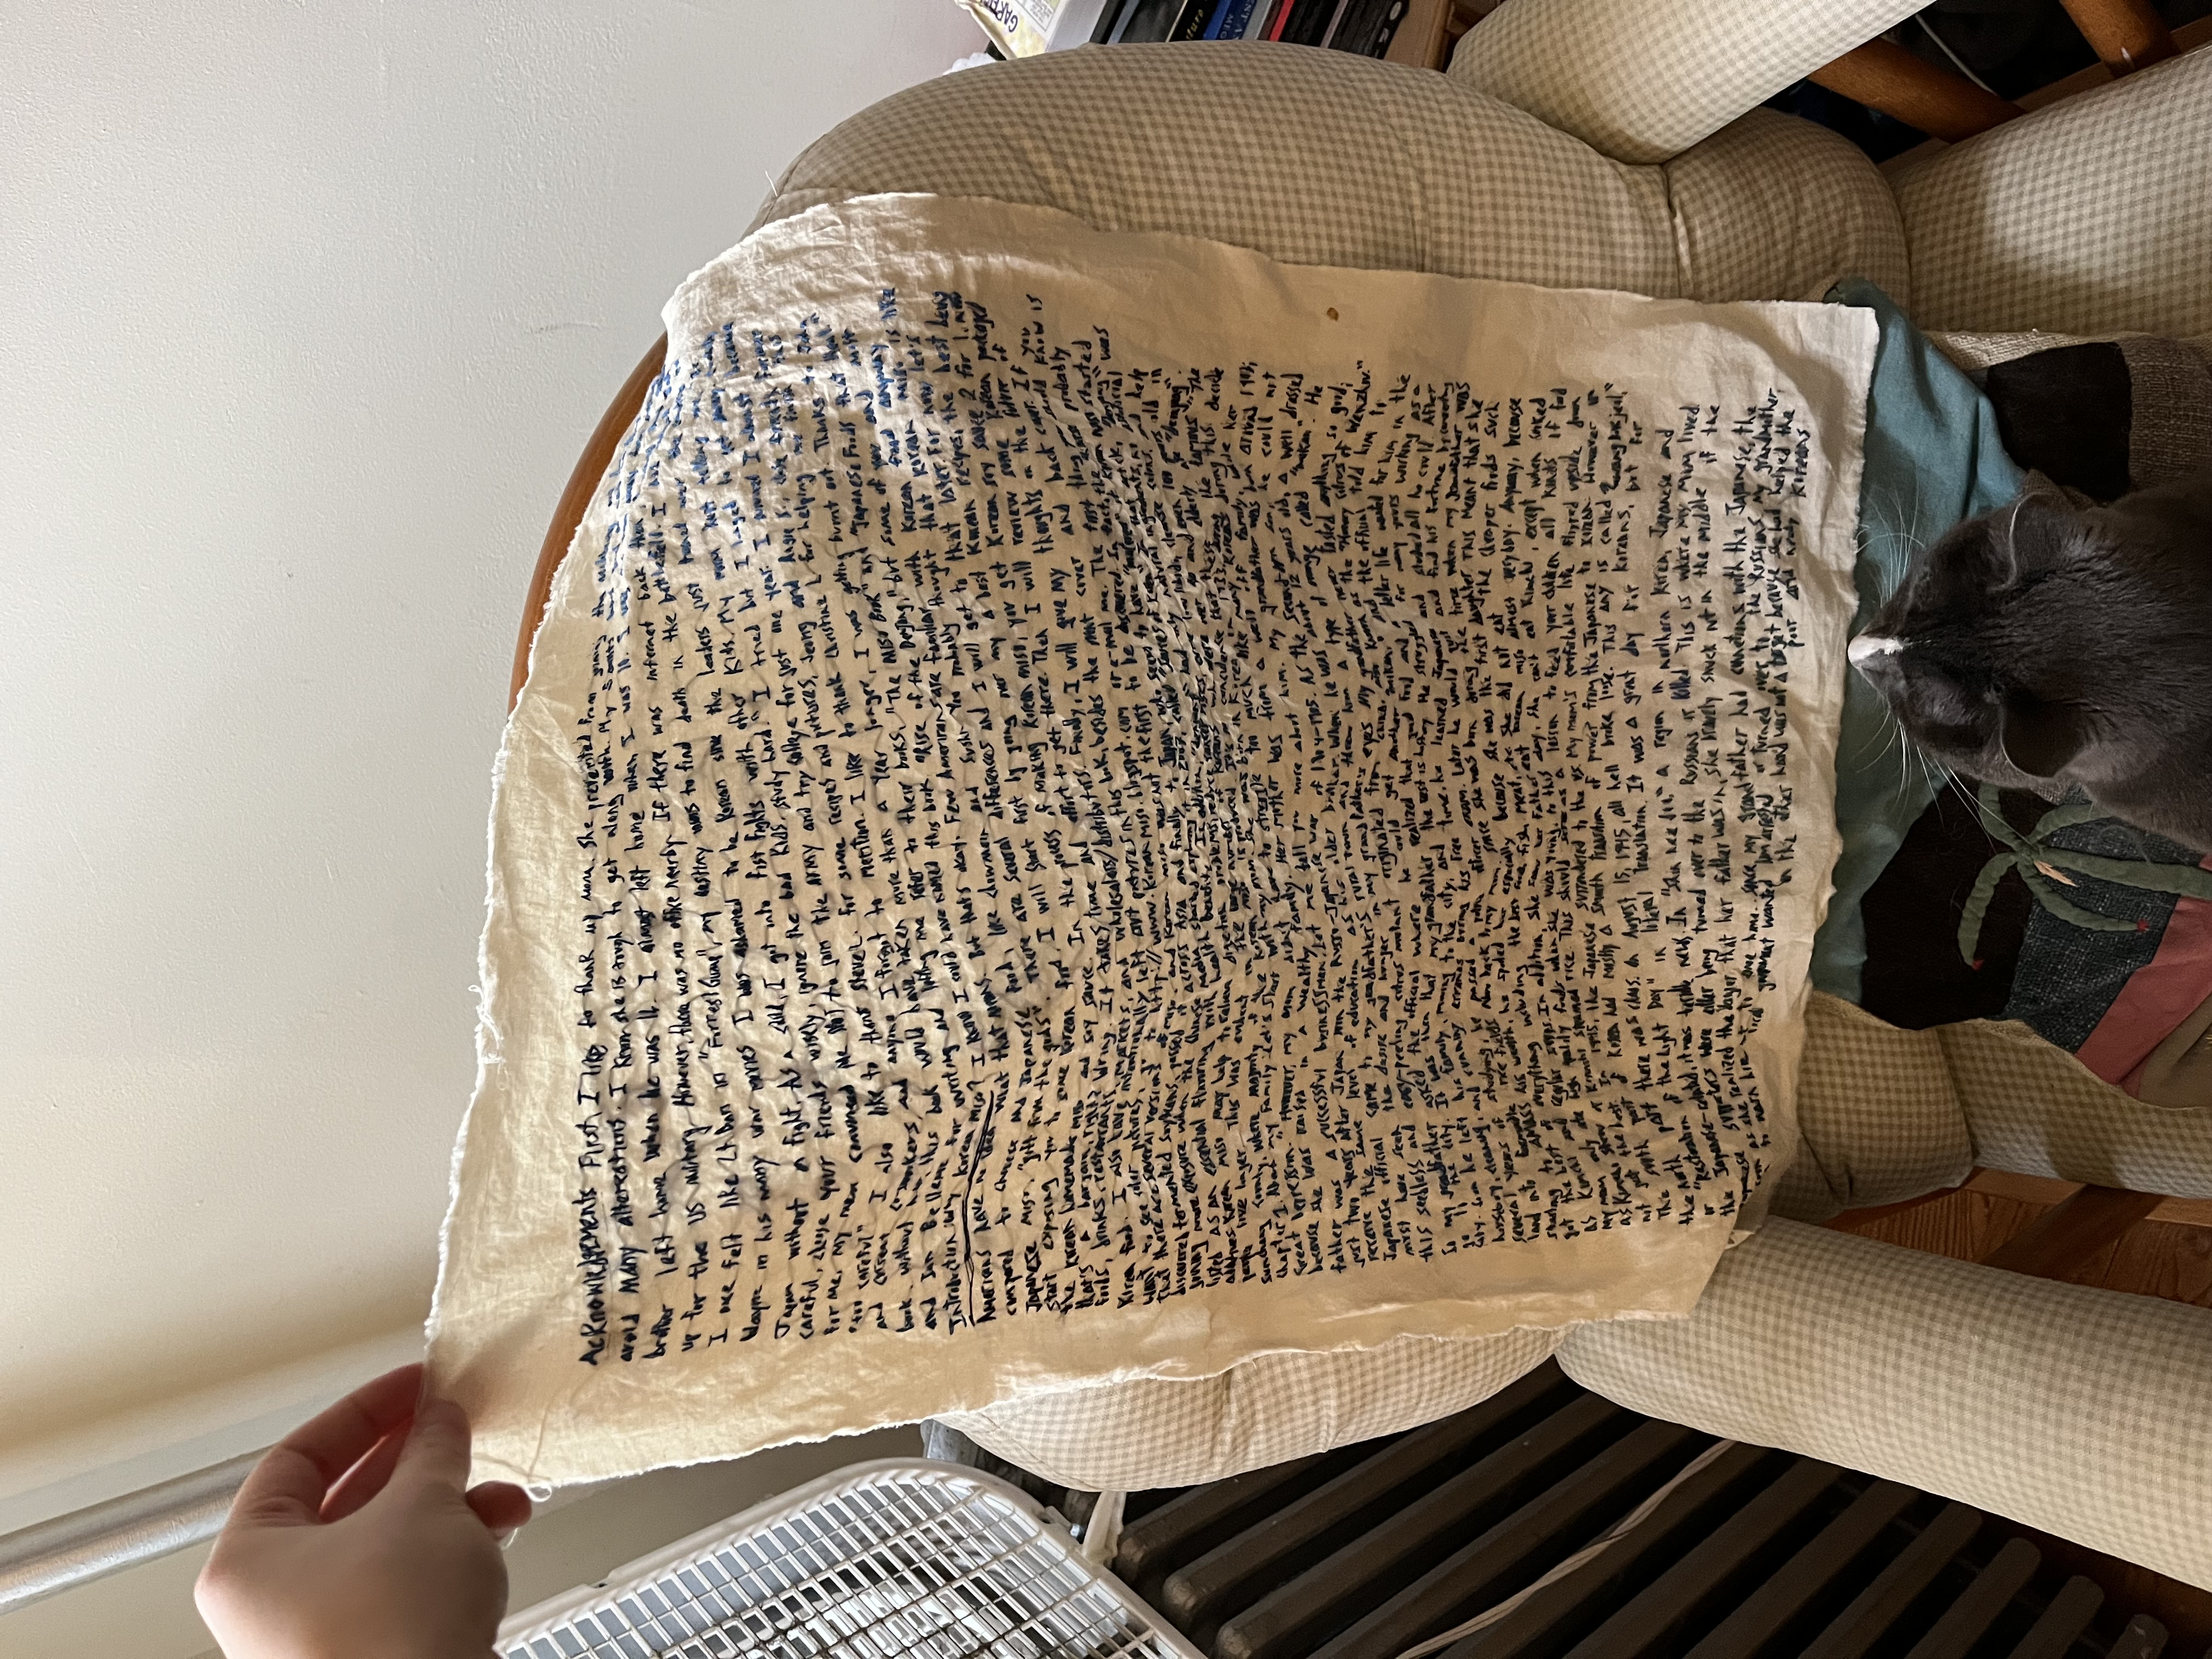 Acknowledgements First, I like to thank my mom. She prevented from
avoid many altercations. I know she is tough to get along with. My
brother left home when he was 16. I almost left home when I was 10. I was
up for the US military. However, there was no office nearby. If there was internet back then,
I once felt like Lt Dan in "Forrest Gump", my destiny was to find death in the battlefield. I
Wayne in his many war movies I was ashamed to be Korean since the leaders just
Japan without a fight. As a child, I got into fist fights with other kids. My mom kept telling me
careful, choose your friends wisely, ignore the bad kids, study hard." I tried but I longed to get away.
for me, my mom convinced me NOT to join the army and try college for just one year. I almost became
"too careful" I also like to thank Steve L. for some recipes and pictures, Jeong and Angie S., close friends former
and current coworkers, and anyone I forgot to mention. I like to thank Christine L for helping me finish this
book. without him this book would have taken more than a year longer, I was getting burnt out. Thanks to John
and Jan Belleme for writing and letting me refer to their books, "The Miso Book" and "Japanese Foods that Heal."
Introduction: Why Korean miso? I know I could have named this book of the Denjang," but some of you and most
Americans have no idea what that means. But that's okay. Few Americans are familiar with Korean food anyway
compared to Chinese and Japanese food, like chowmein and sushi You probably thought that Korean miso is like
Japanese miso, "gift from the gods". There are several differences and I will get to that later. For now, let's
start exposing you to some Korean food. I will start first by going over my a best Korean recipes, the best being
the Korean homemade miso and soy sauce. In the process of making Korean miso, you get Korean soy sauce 2 for 1, now
that's a bargain, right? Wrong. It takes time and effort to get there. Then I will review some Korean packaged
foods, drinks, restaurants, markets, and wholesalers/distributors. Finally, I will give my thoughts on the future of
Korean food. I also have intentionally left out pictures in this book, besides the front cover and back cover. If you
want to see color pictures, go to http://www.Koreanmiso.blogspot.com or e-mail me. The first thing you should know is
that there are several versions of miso. and Korean miso was not the first to be discovered. In fact, the probably
discovered fermented soybeans, passed it across Asia and finally to Japan, who seems to have "matured" it. Korean miso started
gaining more exposure when the Chinese media started exploring it in 2007, called "Sauces of Korea" In that article, "Denjang"
listed as an essential flavoring with health benefits. In addition, "denjang" had only natural ingredients, no artificial
additives. Korean miso may help to relieve digestion problems, reduce cancer risks, lower blood, cleanse colons, and help
people live longer. This was evident in the large number of Koreans who were over 90 and even 100 years old in
Sunchang County, where majority of the Korean miso is produced. It's no coincidence that these elderly ate "denjang".
Chapter 1. About my Family: Let's start with my mom. She was born in Korea in 1933, during the famous "The
Great Depression." However, my mom didn't have to struggle too much like many Koreans during this decade
because she was raised in a wealthy family. Her mother was from a well off family, while her
father was a successful businessman. Let me tell you more about him. My grandfather was born during 1907;
just two years after Japan won the Russo-Japanese war of 1904-1905. As the second-born son, he could not
receive the same level of education as his older brother. When he was about 12 years old, a well dressed
Japanese official came to my grandfather's rural town and threw him a type of orange called "mikan". He
must have seen the desire and hunger in my grandfather's eyes. My grandfather never tasted anything so good;
this seedless and easy-peeling citrus mutant originated from China, also known as the "Honey citrus of Wenzhou."
So my grandfather asked the official where he could get another "mikan," and the official told him to
go to the city. It was then that my grandfather realized that good food and a better life waited for him in the
city. Soon he left his family, moving to the city, and the rest is history. He struggled for many years working as a
horseboy, cleaning, and running errands. During his free time, he learned Japanese and studied all he could. After
several years of studying, he passed a police officer exam. Later he would quit and find his fortune by converting
land into farmable rice fields. Now back to my mom, since she was born during the time when my grandfather was
starting to amass his wealth, he spoiled her especially because she was the first daughter. This meant that she
got the best of everything including the best fish, meat, etc. She did not eat the cheaper foods such
as Kimchi and regular soups. In addition, she saw her father eat Korean miso almost everyday. Anyway, because
my mom only ate high quality foods when she was young, to this day, she can't eat Kimchi, except when cooked
as Kimchi stew or Kimchi steamed rice. This should serve as a lesson to feed your children all kinds of food
not just the best. In 1945, the Japanese surrendered to the US. My mom's comfortable life flipped upside down
The south part of Korea had mostly a smooth transition of power from the Japanese to Korean. However in
the north part there was chaos. On August 15, 1945, all hell broke loose. This day is called "Gwangbokjeol,"
or "Restoration of the Light Day" in literal translation. It was a great day for Koreans, but for
the Japanese-related, it was terrible news. In "Shin hee doe," a region in northern Korea, Japanese and
Japanese supporters were either being turned over to the Russians or killed. This is where my mom lived.
soon as she realized the danger that her father was in, she bravely snuck out in the middle of the
to warn him not to come home. Since my grandfather had connections with the Japanese, the
local government wanted him arrested or turned over to the Russians. My grandmother,
on the other hand was not a target because she had helped the
poor and needy Koreans